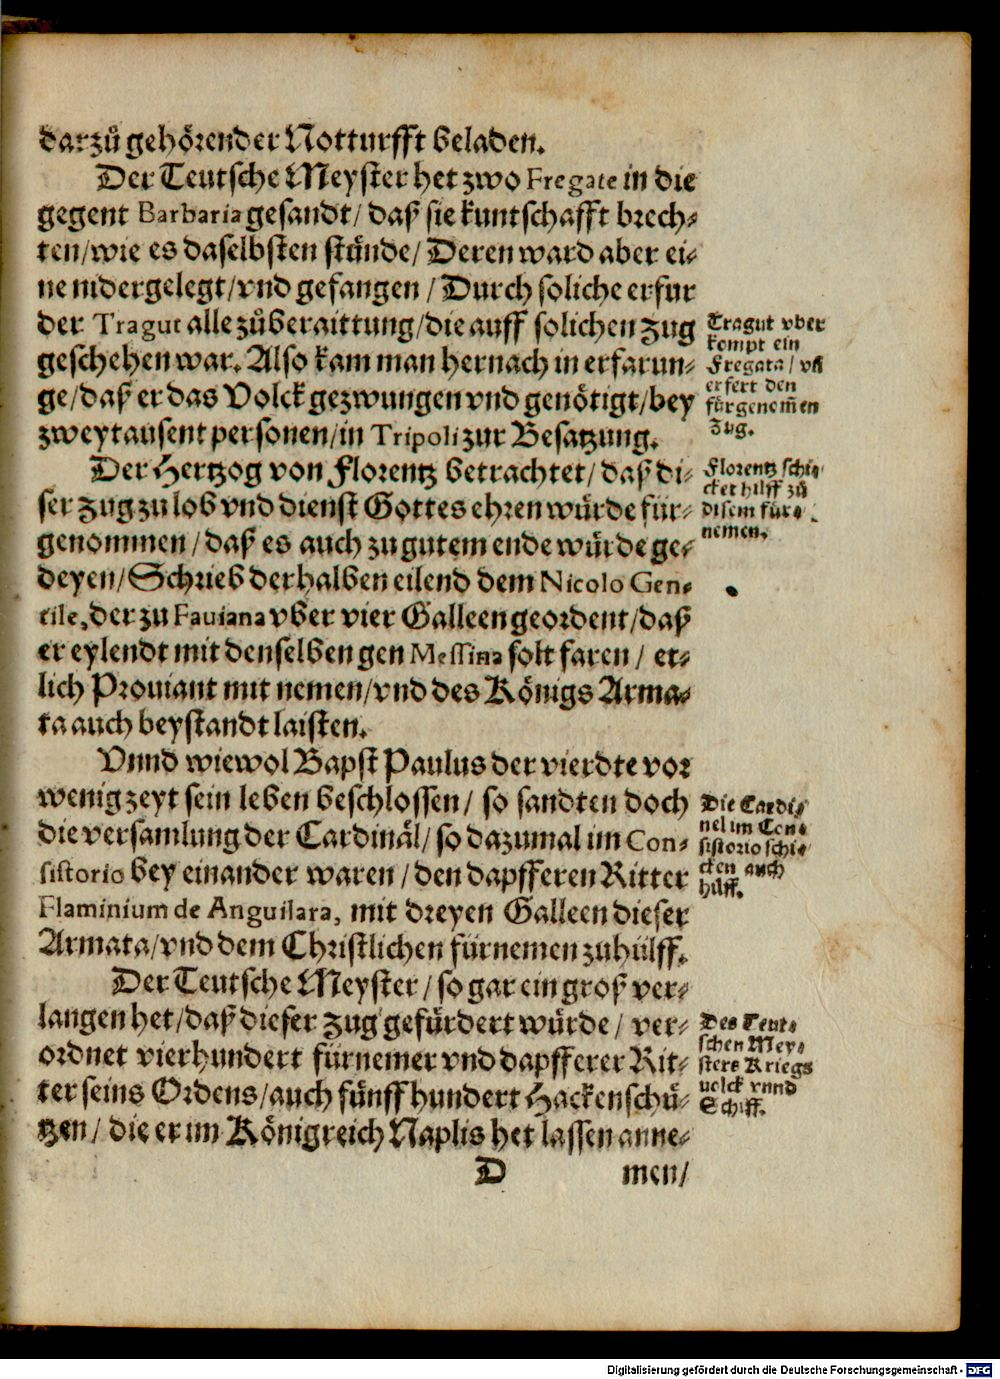 darzů gehörender Notturfft beladen.
Der Teutsche Meyster het zwo Fregate in die
gegent Barbaria gesandt/ daß sie kuntschafft brech-
ten/wie es daselbsten stünde/ Deren ward aber ei-
ne nidergelegt/vnd gefangen / Durch soliche erfur
der Tragut alle zůberaittung/die auff solichen zug
geschehen war. Also kam man hernach in erfarun-
ge/daß er das Volck gezwungen vnd genötigt/bey
zweytausent personen/in Tripoli zur Besatzung.
Tragut vber
kompt ein
Fregata / vñ
erfert den
fürgenom̃en
Zug.
Der Hertzog von Florentz betrachtet/ daß di-
ser zug zu lob vnd dienst Gottes ehren würde für-
genommen / daß es auch zu gutem ende würde ge-
deyen/ Schrieb derhalben eilend dem Nicolo Gen-
tile, der zu Fauiana vber vier Galleen geordent/daß
er eylendt mit denselben gen Messina solt faren / et-
lich Prouiant mit nemen/vnd des Königs Arma-
ta auch beystandt laisten.
Florentz schi-
cket hilff zů
disem für-
nemen.
Vnnd wiewol Bapst Paulus der vierdte vor
wenig zeyt sein leben beschlossen/ so sandten doch
die versamlung der Cardinäl/ so dazumal im Con-
sistorio bey einander waren / den dapfferen Ritter
Flaminium de Anguilara, mit dreyen Galleen dieser
Armata/vnd dem Christlichen fürnemen zu hülff.
Die Cardi-
nel im Con-
sistorio schi-
cken auch
hilff.
Der Teutsche Meyster / so gar ein groß ver-
langen het/daß dieser zug gefürdert würde/ ver-
ordnet vierhundert fürnemer vnd dapfferer Rit-
ter seins Ordens/auch fünffhundert Hackenschü-
tzen/ die er im Königreich Naplis het lassen anne-
Des Teut-
schen Mey-
sters Kriegs
uolck vnnd
Schiff.
D men/
Digitalisierung gefördert durch die Deutsche Forschungsgemeinschaft - DFG